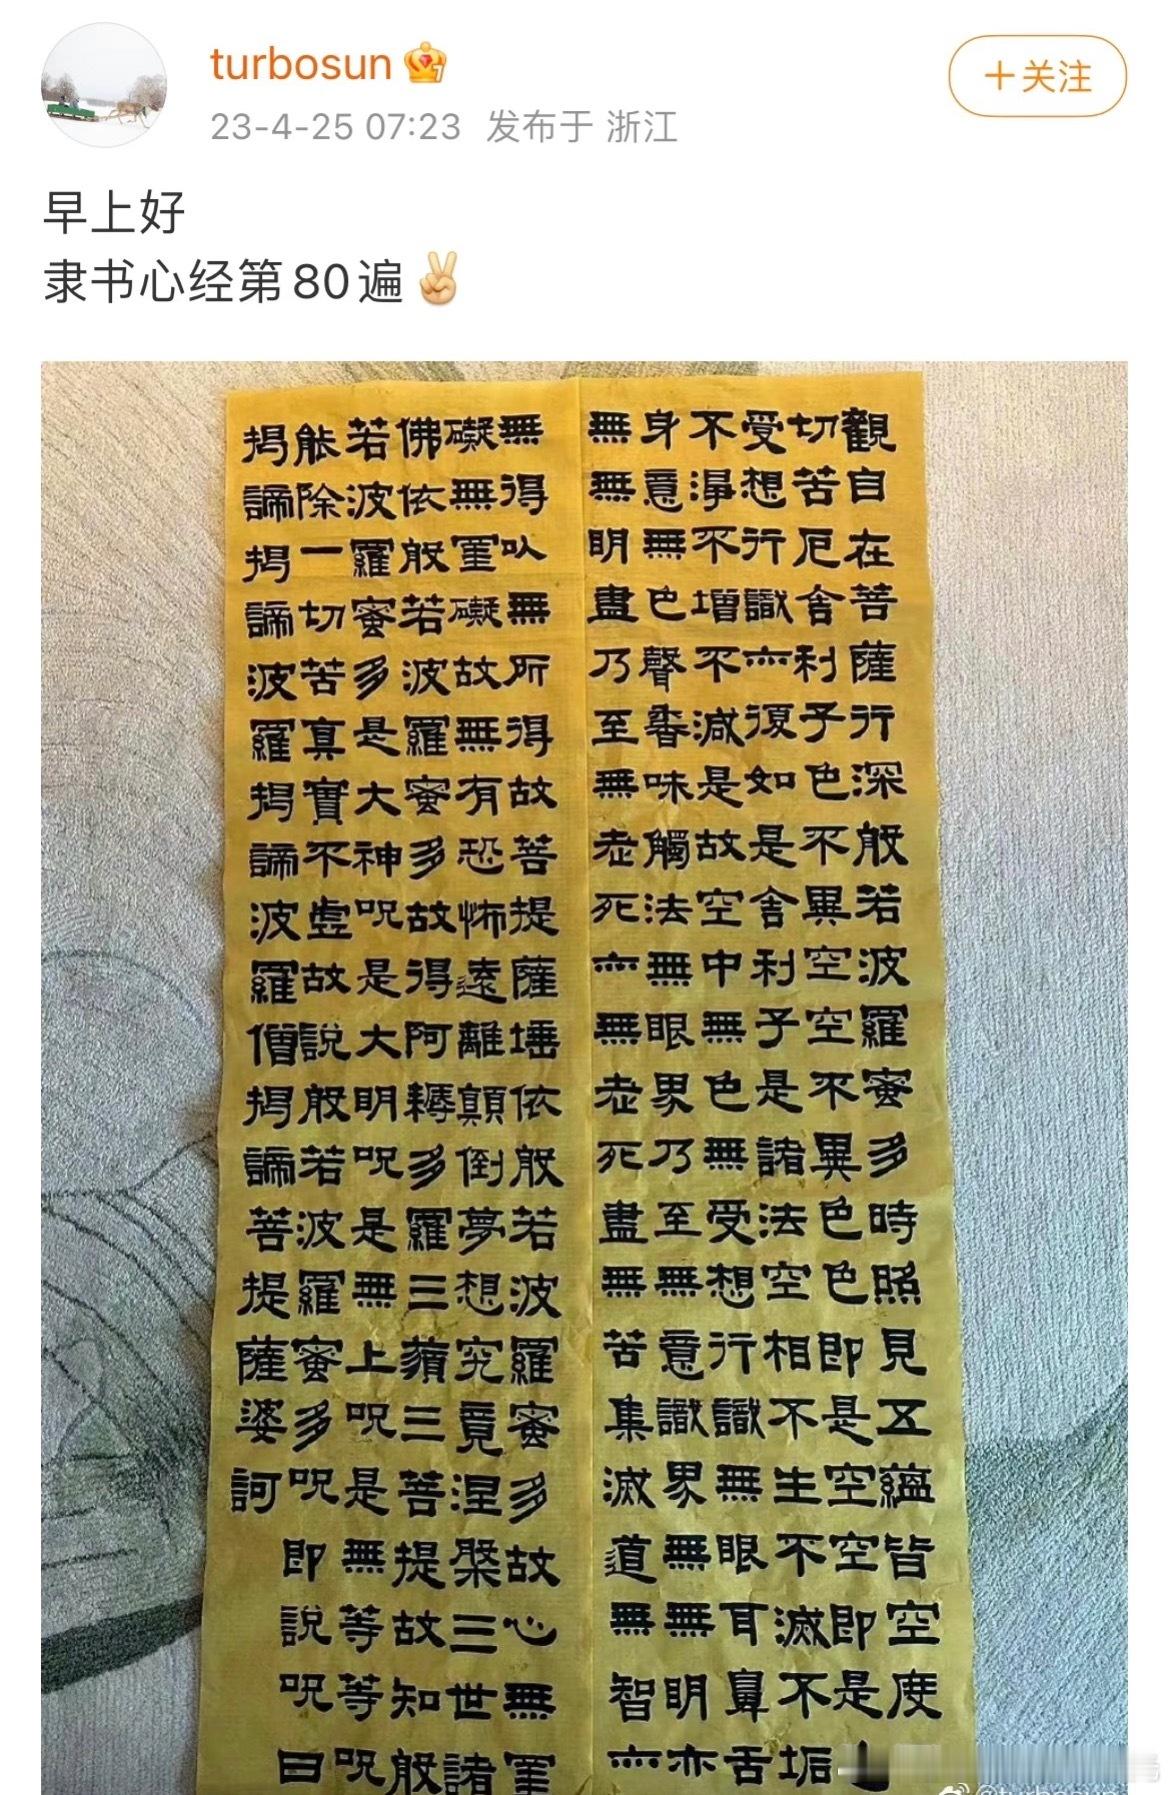 turbosun
23-4-25 07:23 发布于 浙江
+关注
早上好
隶书心经第80遍✌🏻
觀自在菩薩行深般若波羅蜜多時照見五蘊皆空度
切苦厄舍利子色不異空空不異色色即是空空即是
受想行識亦復如是舍利子是諸法空相不生不滅不垢
不淨不增不減是故空中無色無受想行識無眼耳鼻舌
身意無色聲香味觸法無眼界乃至無意識界無無明亦
無無明盡乃至無老死亦無老死盡無苦集滅道無智亦
無得以無所得故菩提薩埵依般若波羅蜜多故心無罣
礙無罣礙故無有恐怖遠離顛倒夢想究竟涅槃三世諸
佛依般若波羅蜜多故得阿耨多羅三藐三菩提故知般
若波羅蜜多是大神呪是大明呪是無上呪是無等等呪
能除一切苦真實不虛故說般若波羅蜜多呪即說呪曰
揭諦揭諦波羅揭諦波羅僧揭諦菩提薩婆訶
@turbosun